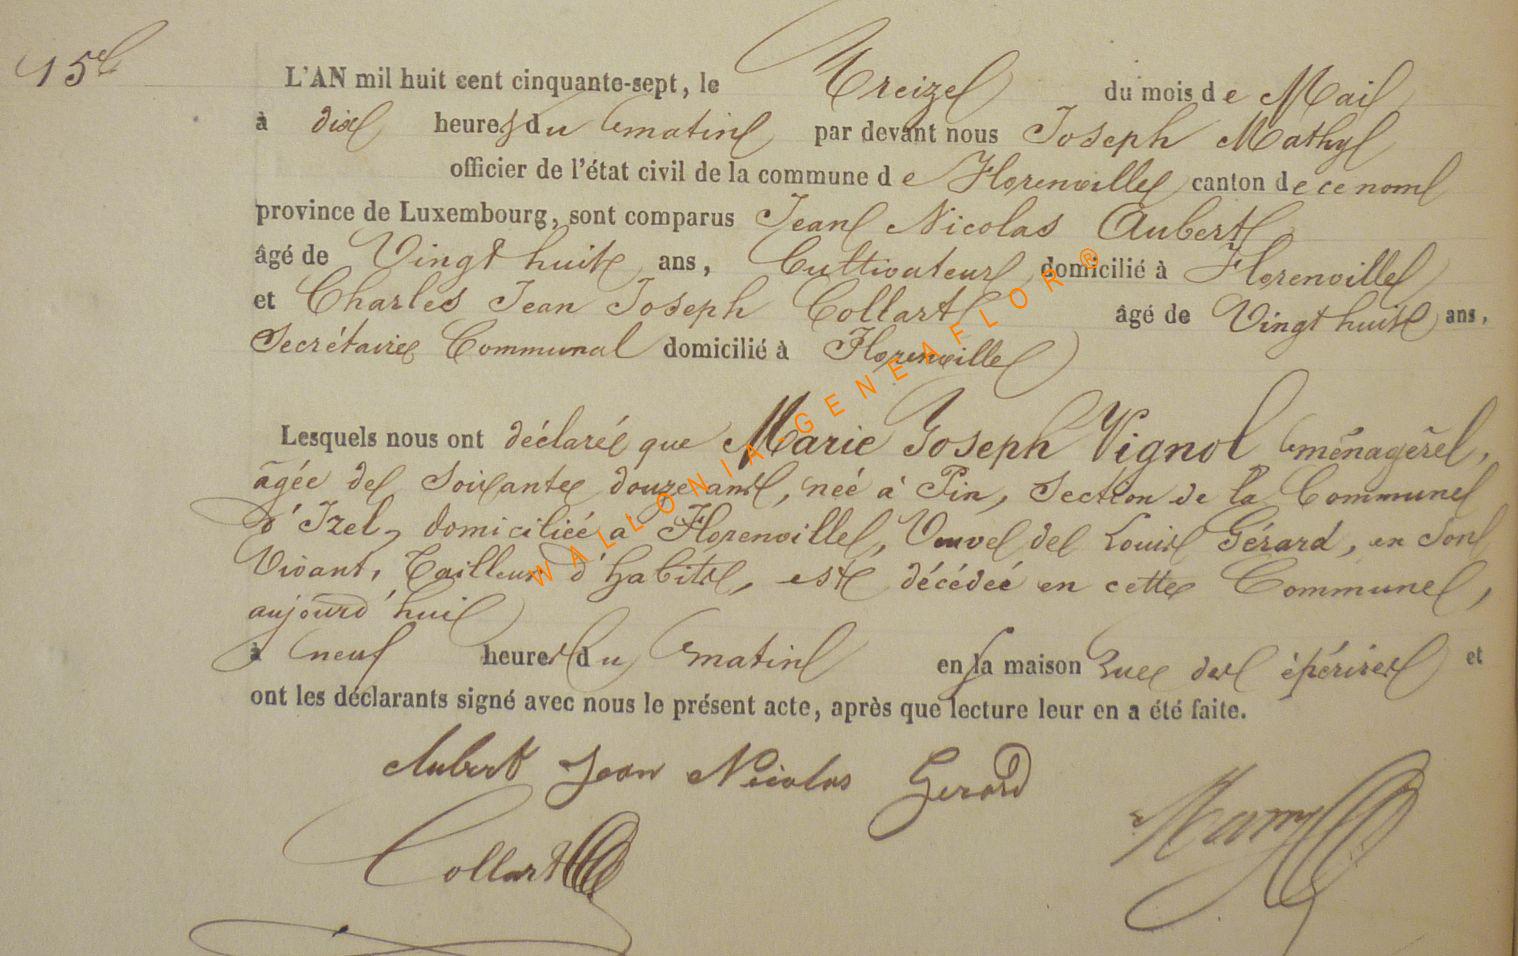 15e
L'AN mil huit cent cinquante-sept, le Treize du mois de Mai
à dix heures du matin par devant nous Joseph Mathy
officier de l'état civil de la commune de Florenville canton de ce nom
province de Luxembourg, sont comparus Jean Nicolas Aubert
âgé de Vingt huit ans, Cultivateur domicilié à Florenville
et Charles Jean Joseph Collart âgé de Vingt huit ans,
Secrétaire Communal domicilié à Florenville
Lesquels nous ont déclaré que Marie Joseph Vignol ménagère,
âgée de Soixante douze ans, née à Pin, Section de la Commune
d'Izel, domiciliée à Florenville, Veuve de Louis Gérard, en Son
Vivant, Tailleur d'habits, est décédée en cette Commune,
aujourd'huil
à neuf heures du matin en la maison rue des épérires et
ont les déclarants signé avec nous le présent acte, après que lecture leur en a été faite.
Aubert Jean Nicolas Gerard
Collart
WALLONIA-GENEAFLOR®